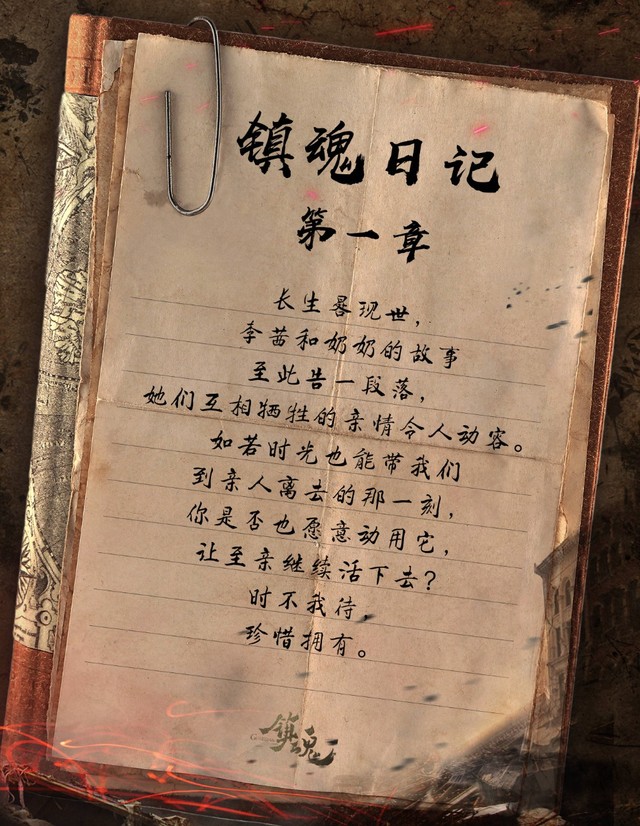 镇魂日记
第一章
长生晷现世，
李茜和奶奶的故事
至此告一段落，
她们互相牺牲的亲情令人动容。
如若时光也能带我们
到亲人离去的那一刻，
你是否也愿意动用它，
让至亲继续活下去？
时不我待，
珍惜拥有。
镇魂